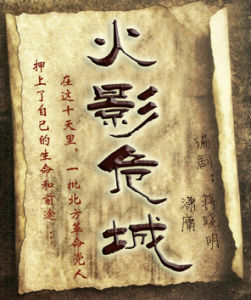 火影危城
编剧：蒋晓明
潇庸
在这十天里，一批北方革命党人
押上了自己的生命和前途…